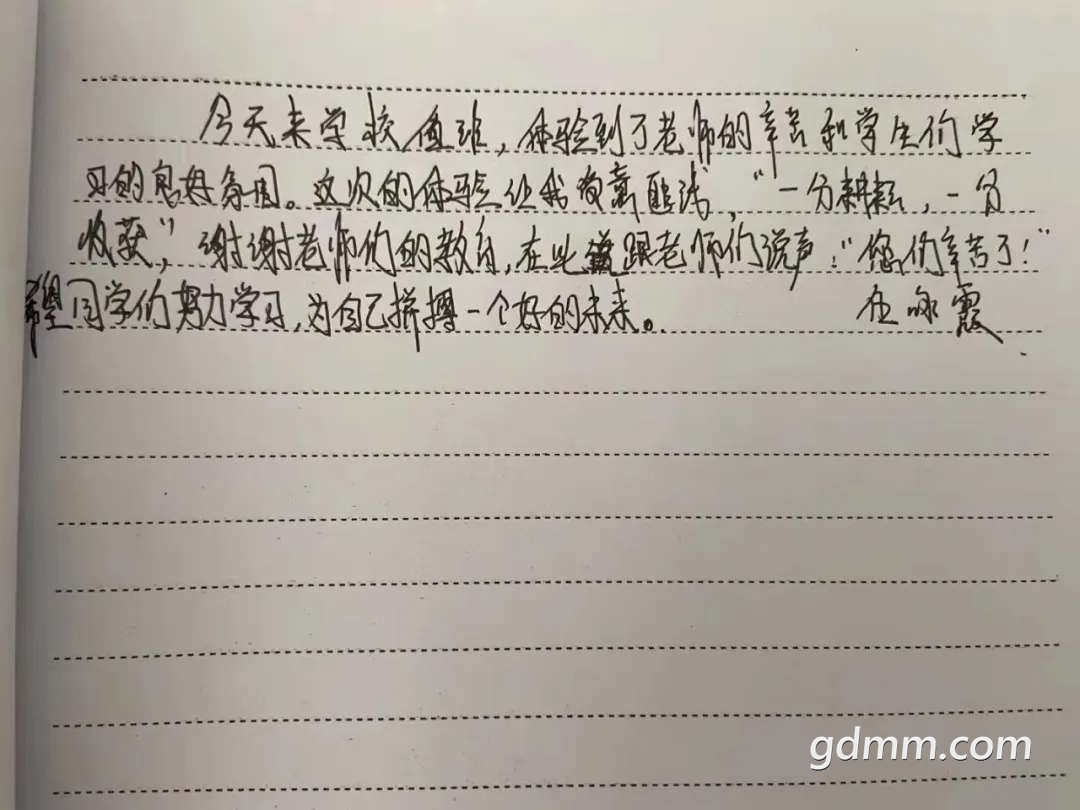 今天来学校值班，体验到了老师的辛苦和学生们学
习的良好氛围。这次的体验让我
，"一分耕耘，一分
收获"，谢谢老师们的教育，在此跟老师们说声："您们辛苦了！"
希望同学们努力学习，为自己拼搏一个好的未来。
咏霞
gdmm.com